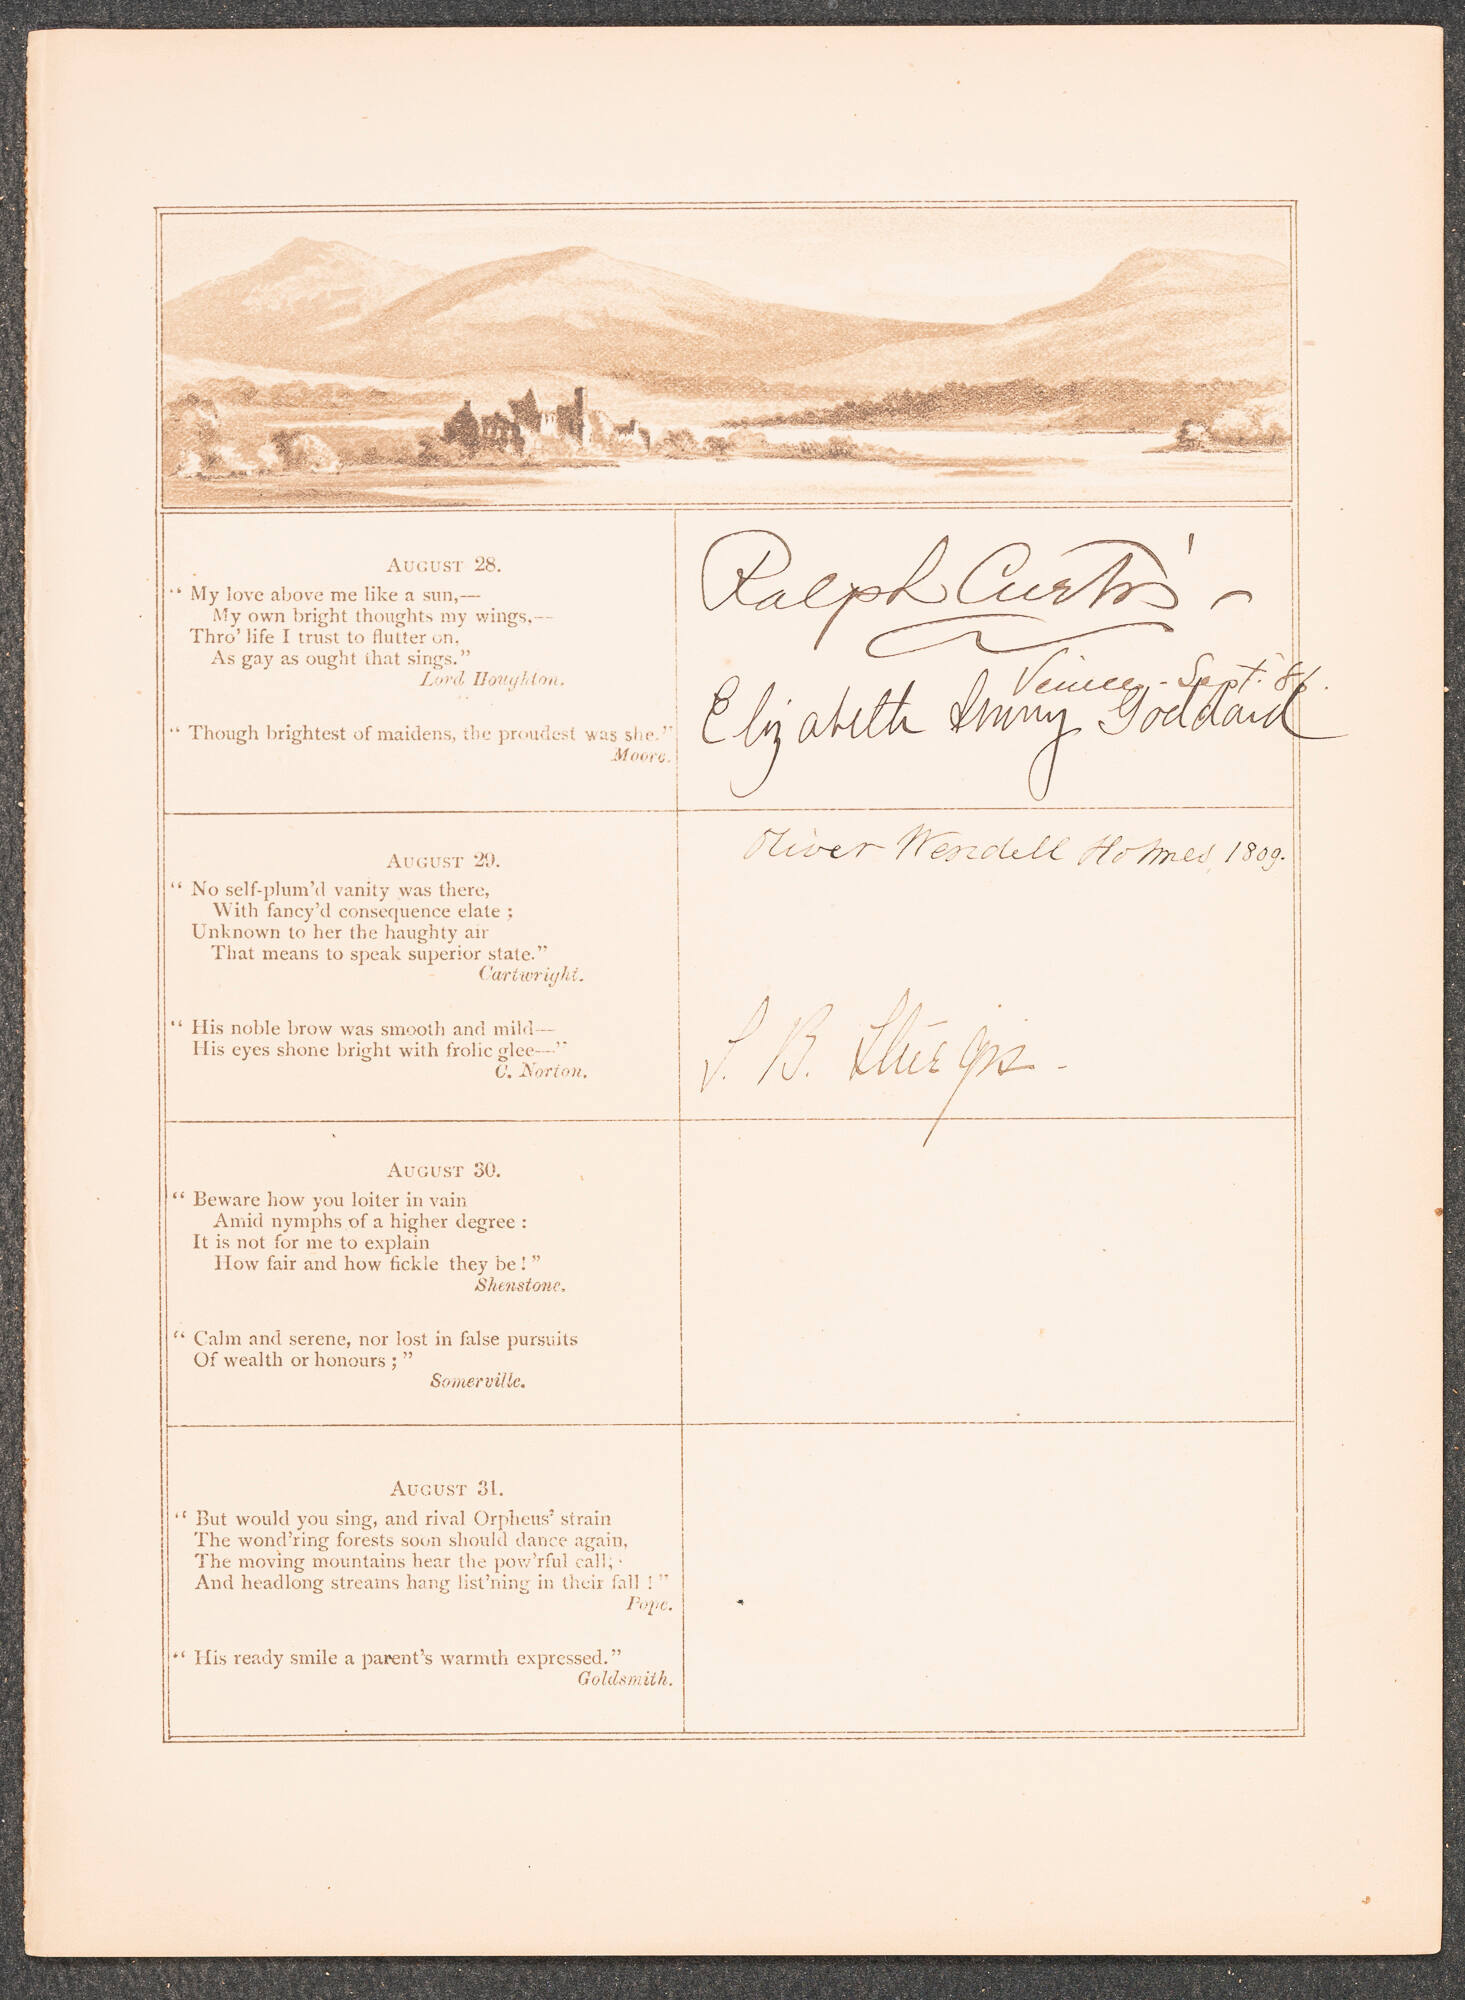 AUGUST 28.
“ My love above me like a sun,—
My own bright thoughts my wings,—
Thro’ life I trust to flutter on,
As gay as ought that sings.”
Lord Houghton.
“ Though brightest of maidens, the proudest was she.”
Moore.
Ralph Curtis –
Venice - Sept. 86.
Elizabeth Goddard
AUGUST 29.
“ No self-plum’d vanity was there,
With fancy’d consequence elate ;
Unknown to her the haughty air
That means to speak superior state.”
Cartwright.
“ His noble brow was smooth and mild—
His eyes shone bright with frolic glee—”
C. Norton.
Oliver Wendell Holmes, 1809.
S. B. Sturgis -
AUGUST 30.
“ Beware how you loiter in vain
Amid nymphs of a higher degree :
It is not for me to explain
How fair and how fickle they be ! ”
Shenstone.
“ Calm and serene, nor lost in false pursuits
Of wealth or honours ; ”
Somerville.
AUGUST 31.
“ But would you sing, and rival Orpheus’ strain
The wond’ring forests soon should dance again,
The moving mountains hear the pow’rful call,
And headlong streams hang list’ning in their fall ! ”
Pope.
“ His ready smile a parent’s warmth expressed.”
Goldsmith.